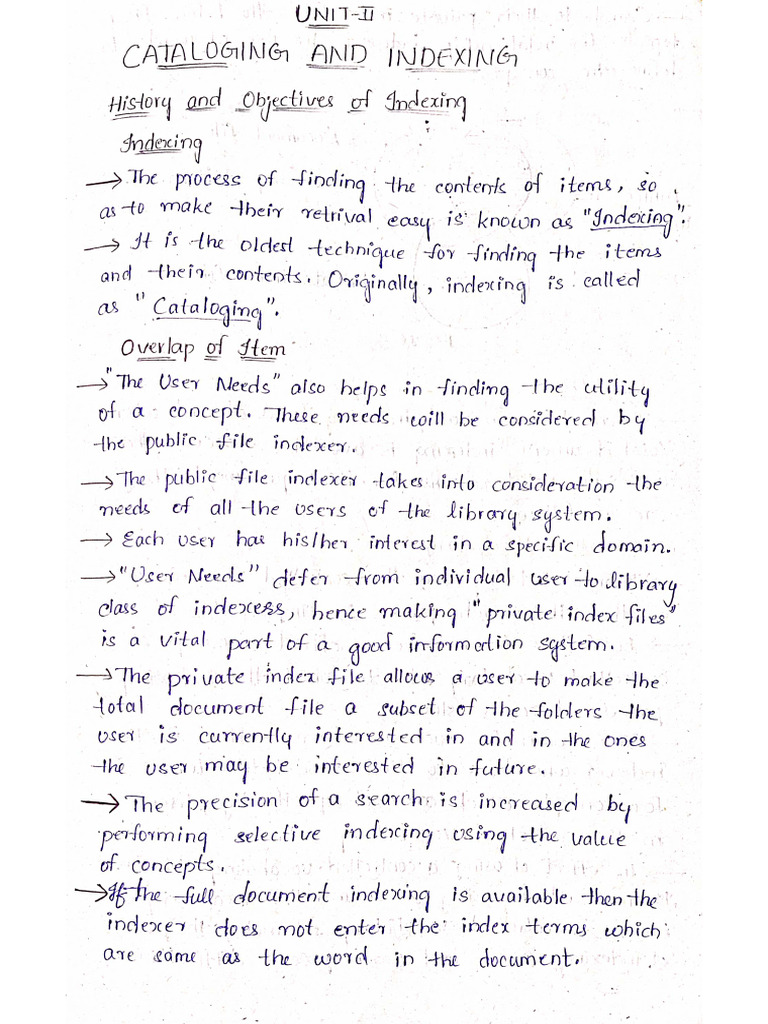 UNIT-II
CATALOGING AND INDEXING
History and Objectives of Indexing
:
Indexing
→ The process of finding the contents of items, so
as to make their retrival easy is known as "Indexing".
→ It is the oldest technique for finding the items
and their contents. Originally, indexing is called
as "Cataloging".
Overlap of Item
→ "The User Needs" also helps in finding the utility
of a concept. These needs will be considered by
the public file indexer.
→ The public file indexer takes into consideration the
needs of all the users of the library system.
→ Each user has his/her interest in a specific domain.
→ "User Needs" defer from individual user to library
class of indexess, hence making "private index files"
is a vital part of a good information system.
→ The private index file allows a user to make the
total document file a subset of the folders the
user is currently interested in and in the ones
the user may be interested in future.
→ The precision of a search is increased by
performing selective indexing using the value
of concepts.
→ If the full document indexing is available then the
indexer does not enter the index terms which
are same as the word in the document.